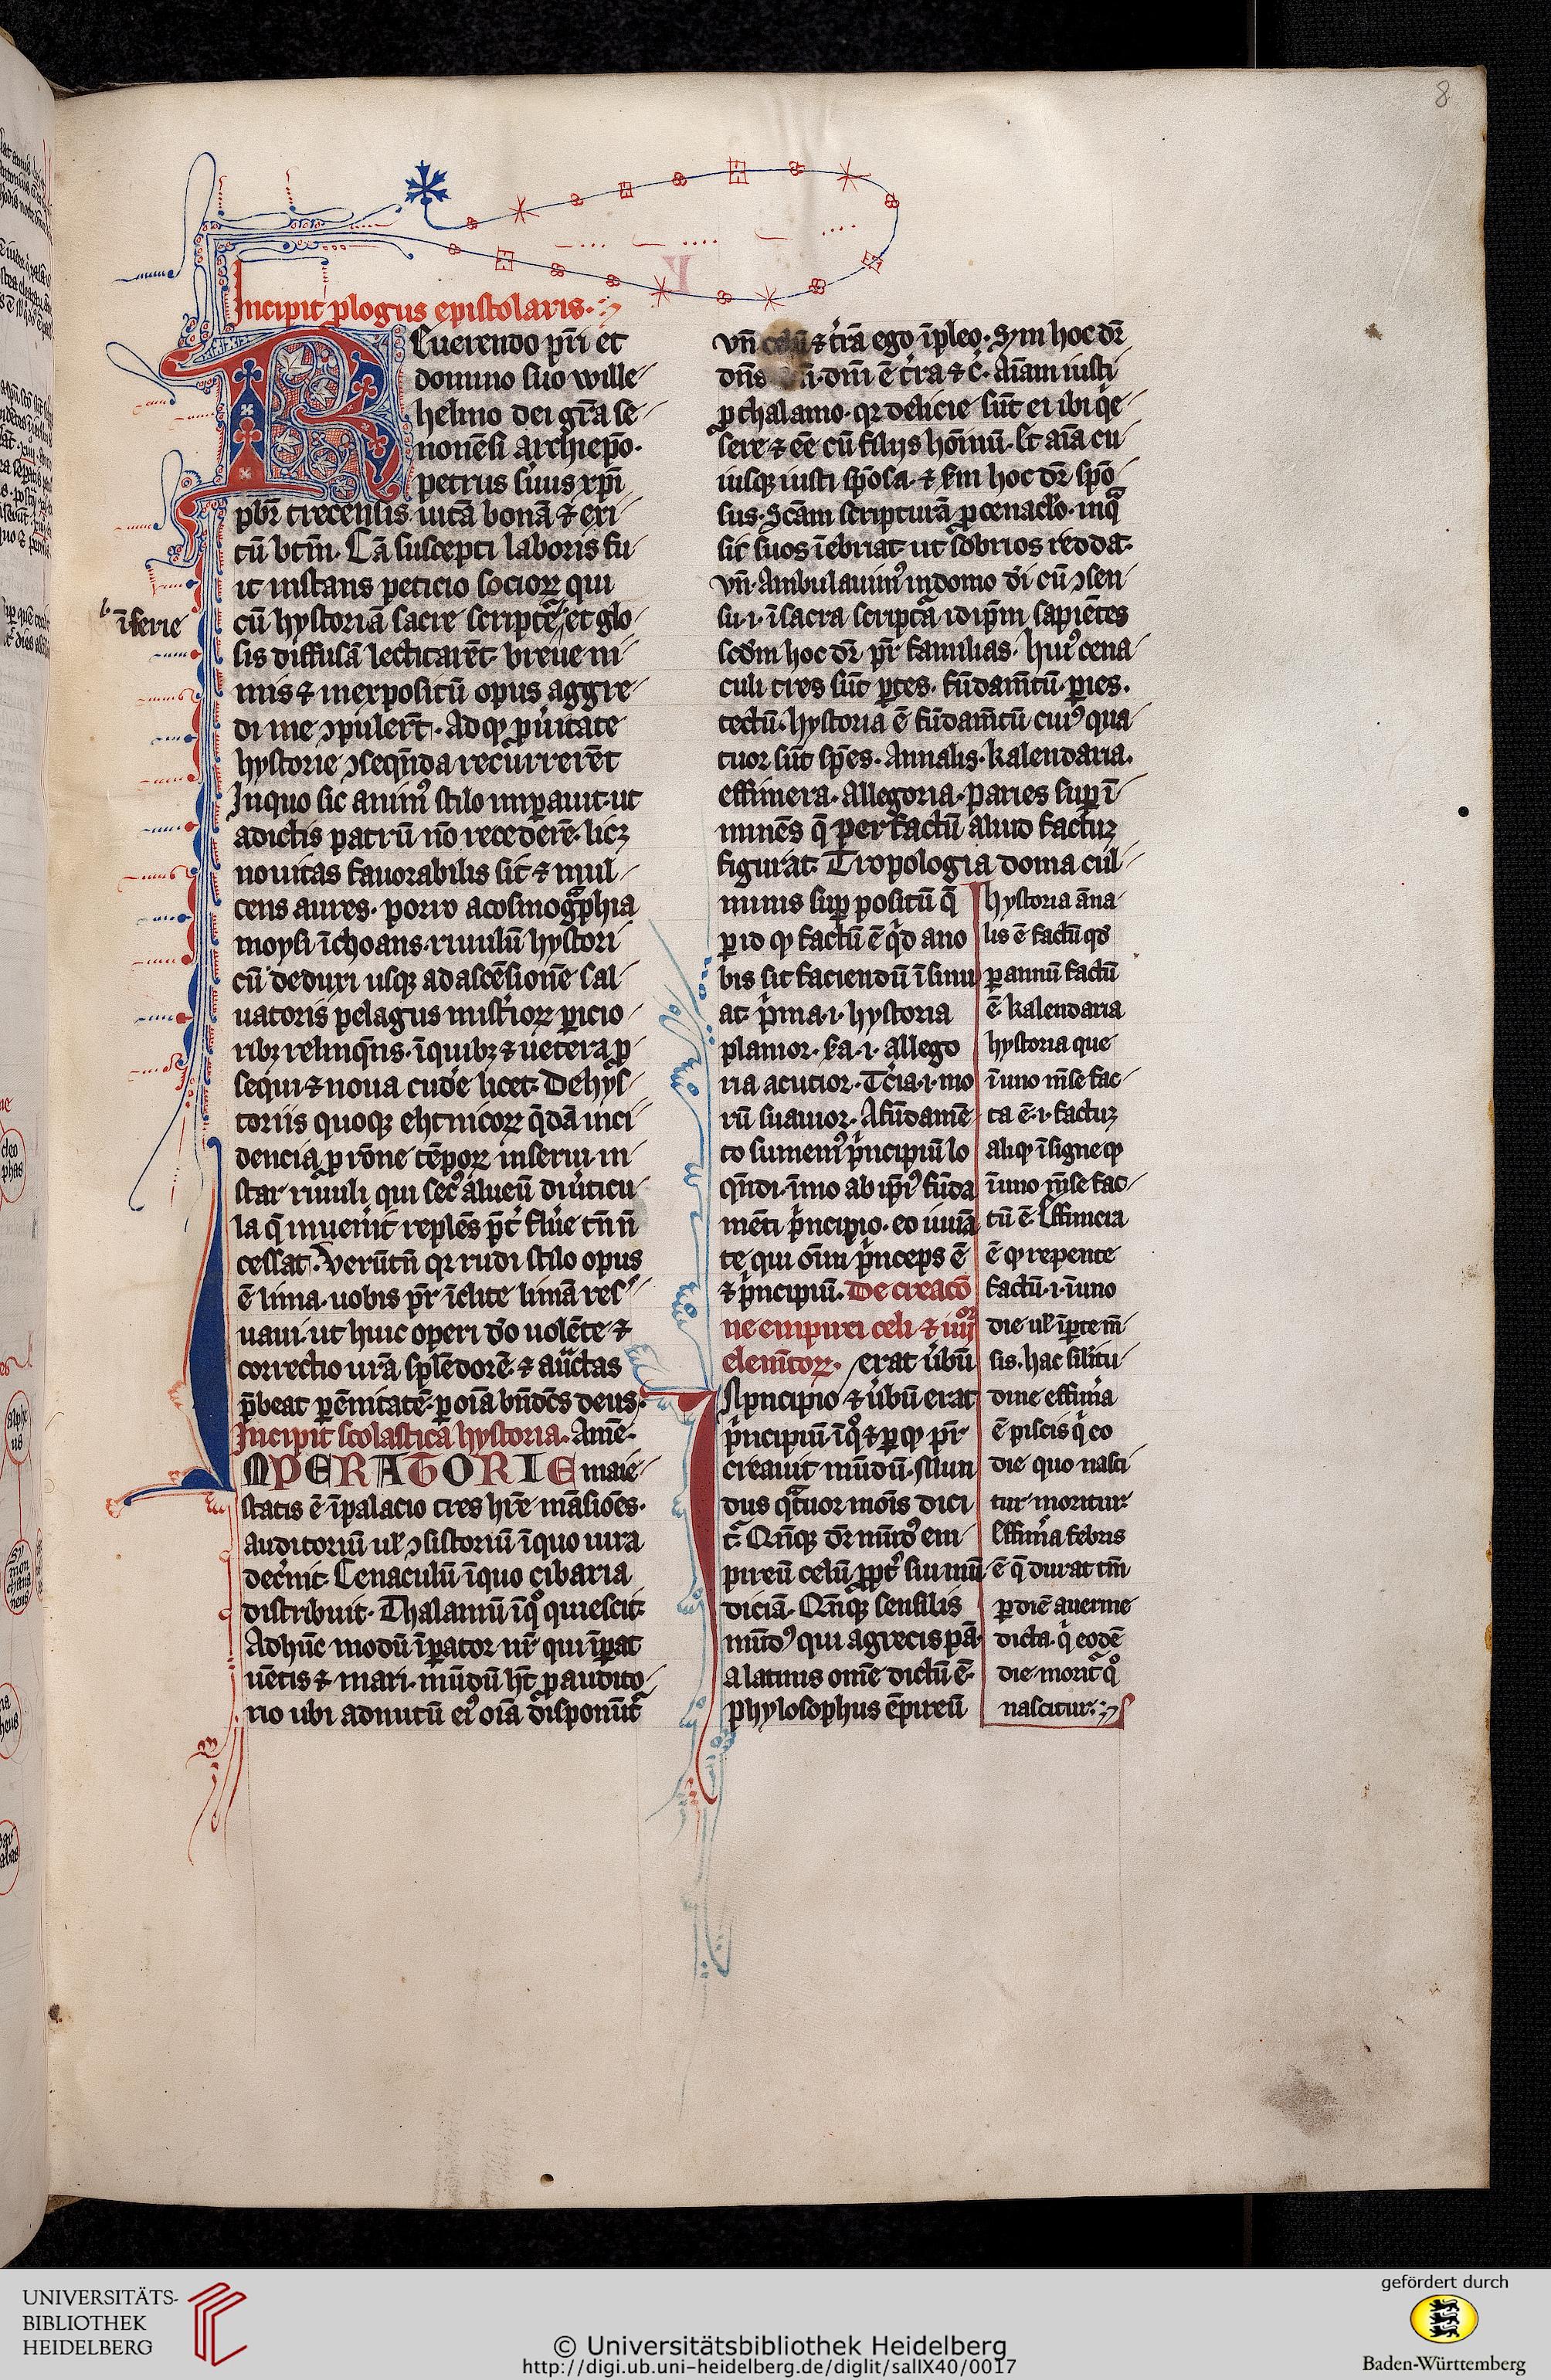 8
Incipit plogus epistolaris.
Reuerendo pr̄i et
domino suo wille
helmo dei gr̄a se
nonēsi archiepō.
petrus suus xp̄i
pbr̄ trecensis uitā bonā ⁊ exi
tū btm̄. Cā suscepti laboris fu
it instans peticio socioꝝ qui
cū hystoriā sacre scripte et glo
īserie
sis diffusā lectitarēt breue ni
mis ⁊ inexpositū opus aggre
di me ꝯpulerūt. Ad qͦ ꝓ ueritate
hystorie ꝯsequēda recurrerēt
In quo sic animꝰ stilo imꝑauit. ut
a dictis patrū nō recederē. licꝫ
nouitas fauorabilis sit ⁊ mul
cens aures. porro a cosmogͣphia
moysi īchoans. riuulū hystori
cū deduxi usqꝫ ad ascēsionē sal
uatoris pelagus mist̕ioꝝ ꝑicio
ribꝫ relinqͣns. ī quibꝫ ⁊ uetera ꝓ
sequi ⁊ noua cud̕e licet. De hys
toriis quoqꝫ ehtnicoꝝ qͣdā inci
dencia ꝓ rōne tēpoꝝ inserui in
star riuuli qui secꝰ alueū diu̕ticu
la qͣ inuen̕it replēs p̄t̕ flu̕e tn̄ n̄
cessat. Verūtn̄ qꝛ rudi stilo opus
ē lima. uobis pr̄ īclite limā res̕
uaui. ut huic operi dō uolēte ⁊
correctio ur̄a splēdorē. ⁊ auctas
p̄beat ꝑēnitatē. ꝑ oīa bn̄dc̄s deus.
Incipit scolastica hystoria. Amē.
IMPERATORIE maie
statis ē ī palacio tres hr̄e māsiōes.
auditoriū ul̕ ꝯsistoriū ī quo iura
dec̕nit. Cenaculū ī quo cibaria
distribuit. Thalamū ī qͦ quiescit.
Ad hūc modū īꝑator nr̄ qui īꝑat
uētis ⁊ mari. mūdū hꝫ ꝓ audito
rio ubi ad nutū eiꝰ oīa disponūt᷑
vn̄ ⁊ t̕rā ego īpleo. Sm̄ hoc dr̄
dn̄s dn̄i ē t̕ra ⁊ c̕. Aīam iusti
ꝓ thalamo. qꝛ delicie sūt ei ibi qͥe
sere ⁊ eē cū filijs hoīnū. Et aīa cu
iusqꝫ iusti spōsa. ⁊ sm̄ hoc dr̄ spō
sus. Scām scripturā ꝓ cenaclo. in qͣ
sic suos īebriat ut sobrios reddat.
vn̄. Ambulauimꝰ in domo dei cū ꝯsen
su .i. ī sacra scriptͣa idip̄m sapiētes
scdm̄ hoc dr̄ pr̄ familias. huiꝰ cena
culi tres sūt ꝑtes. fūdam̄tū. paries.
tectū. hystoria ē fūdam̄tū cuiꝰ qua
tuor sūt spēs. Annalis. kalendaria.
effimera. allegoria. paries suꝑ ī
minēs qͣ per factū aliud factū
figurat. Tropologia doma cul
minis suꝑ positū qͣ
ꝑ id qͦ factū ē qͥd a no
bis sit faciendū īsinu
at. pͥma .i. hystoria
planior. sa .i. allego
ria acutior. Tc̕ia .i. mo
rū suauior. A fūdamē
to sumemꝰ pͥncipiū lo
quēdi. īmo ab ip̄iꝰ fūda
mēti pͥncipio. eo iuuā
te qui oīm pͥnceps ē
⁊ pͥncipiū. De creacō
ne empirei celi ⁊ iiijͦꝛ
elem̄toꝝ. erat u̕bū
In pͥncipio ⁊ u̕bū erat
pͥncipiū ī qͦ ⁊ ꝑ qͦ pr̄
creauit mūdū. Mun
dus qͣtuor mōis dici
t᷑. Qn̄qꝫ dr̄ mūdꝰ em
pireū celū ꝓpt̕ sui mū
diciā. Qn̄qꝫ sensilis
mūdꝰ qui a grecis pā.
a latinis omē dictū ē.
phylosophus ēpireū
hystoria āna
lis ē factū qd̕
ꝑ annū factū
ē. kalendaria
hystoria que
ī uno m̄se fac
ta ē .i. factū
aliqͦ īsigne qͦ
ī uno m̄se fac
tū ē. Effimeia
ē qͦ repente
factū .i. ī uno
die ul̕ ī ꝑte m̄
sis. hac silitu
dine effim̕a
ē piscis qͥ eo
die quo nasci
tur moritur.
Effim̕a febris
ē qͣ durat tm̄
ꝑ diē a uerme
dicta. qͥ eodē
die. morit᷑ qͦ
nascitur.
UNIVERSITÄTS-
BIBLIOTHEK
HEIDELBERG
© Universitätsbibliothek Heidelberg
http://digi.ub.uni-heidelberg.de/diglit/salIX40/0017
gefördert durch
Baden-Württemberg